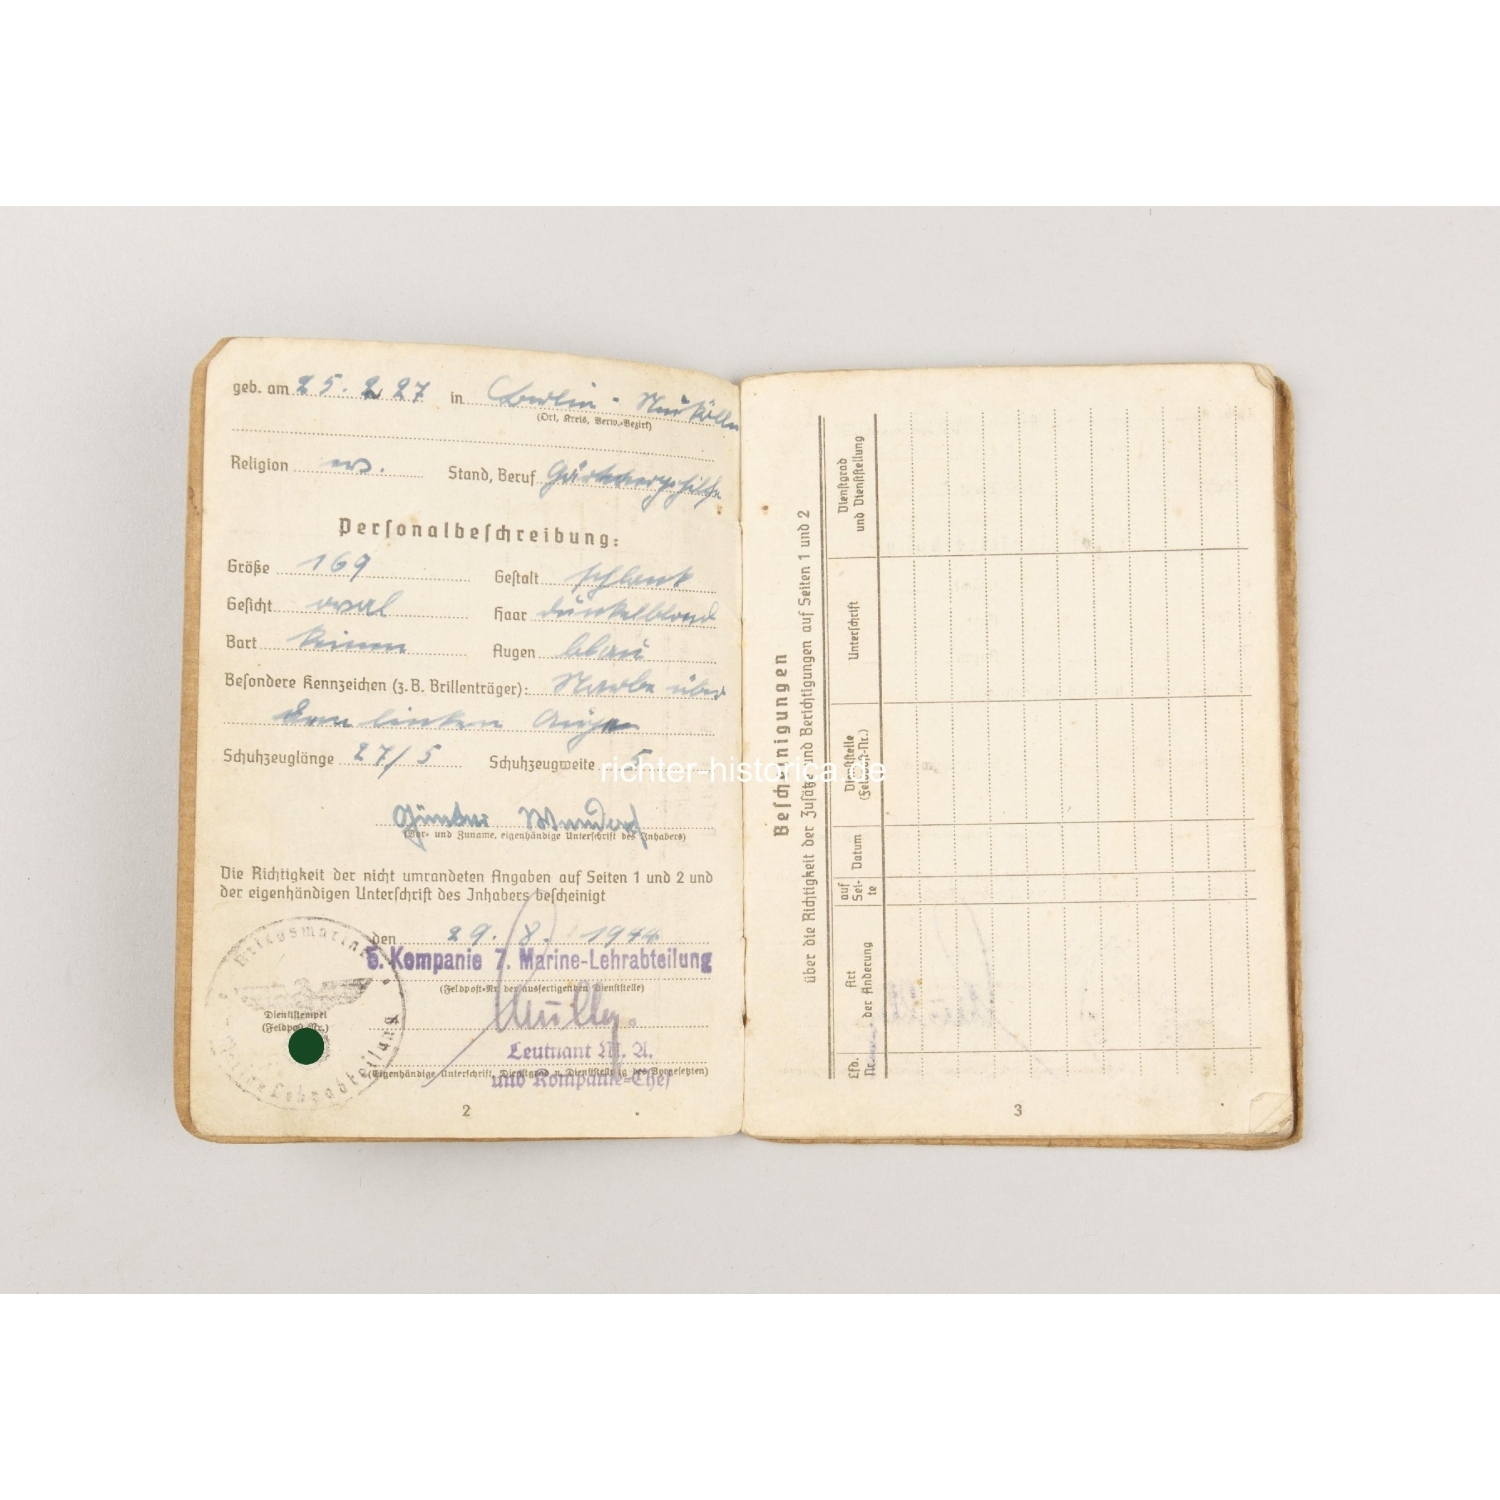 geb. am 25. 2. 27 in Berlin - Neukölln
(Ort, Kreis, Verw.-Bezirk)
Religion ev. Stand, Beruf
Personalbeschreibung:
Größe 169 Gestalt schlank
Gesicht oval Haar dunkelblond
Bart keinen Augen blau
Besondere Kennzeichen (z. B. Brillenträger): Narbe über
dem linken Auge
Schuhzeuglänge 27/5 Schuhzeugweite 5
Günter
(Vor- und Zuname, eigenhändige Unterschrift des Inhabers)
Die Richtigkeit der nicht umrandeten Angaben auf Seiten 1 und 2 und
der eigenhändigen Unterschrift des Inhabers bescheinigt
den 29. 8. 1944
Kriegsmarine
5. Kompanie 7. Marine-Lehrabteilung
(Feldpost-Nr. der ausfertigenden Dienststelle)
Dienststempel
(Feldpost-Nr.)
Leutnant M. A.
und Kompanie-Chef
(Eigenhändige Unterschrift, Dienstgrad u. Dienststellung des Vorgesetzten)
2
Bescheinigungen
über die Richtigkeit der Zusätze und Berichtigungen auf Seiten 1 und 2
Lfd. Nr.
Art der Änderung
auf Sei-te
Datum
Dienststelle (Feldpost-Nr.)
Unterschrift
Dienstgrad und Dienststellung
3
richter-historica.de